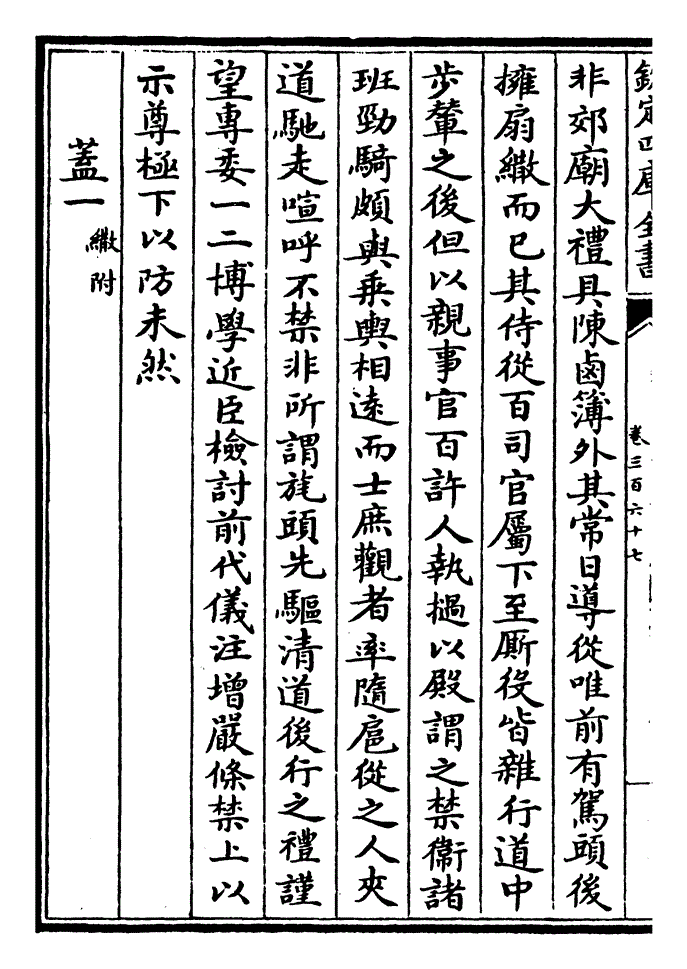 欽定四庫全書
卷三百六十七
非郊廟大禮具陳鹵簿外其常日導從唯前有駕頭後
擁扇繖而已其侍從百司官屬下至厮役皆雜行道中
步輦之後但以親事官百許人執撾以殿謂之禁衛諸
班勁騎頗與乗輿相逺而士庶觀者率隨扈從之人夾
道馳走喧呼不禁非所謂旄頭先驅清道後行之禮謹
望專委一二博學近臣檢討前代儀注增嚴條禁上以
示尊極下以防未然
蓋一 繖附